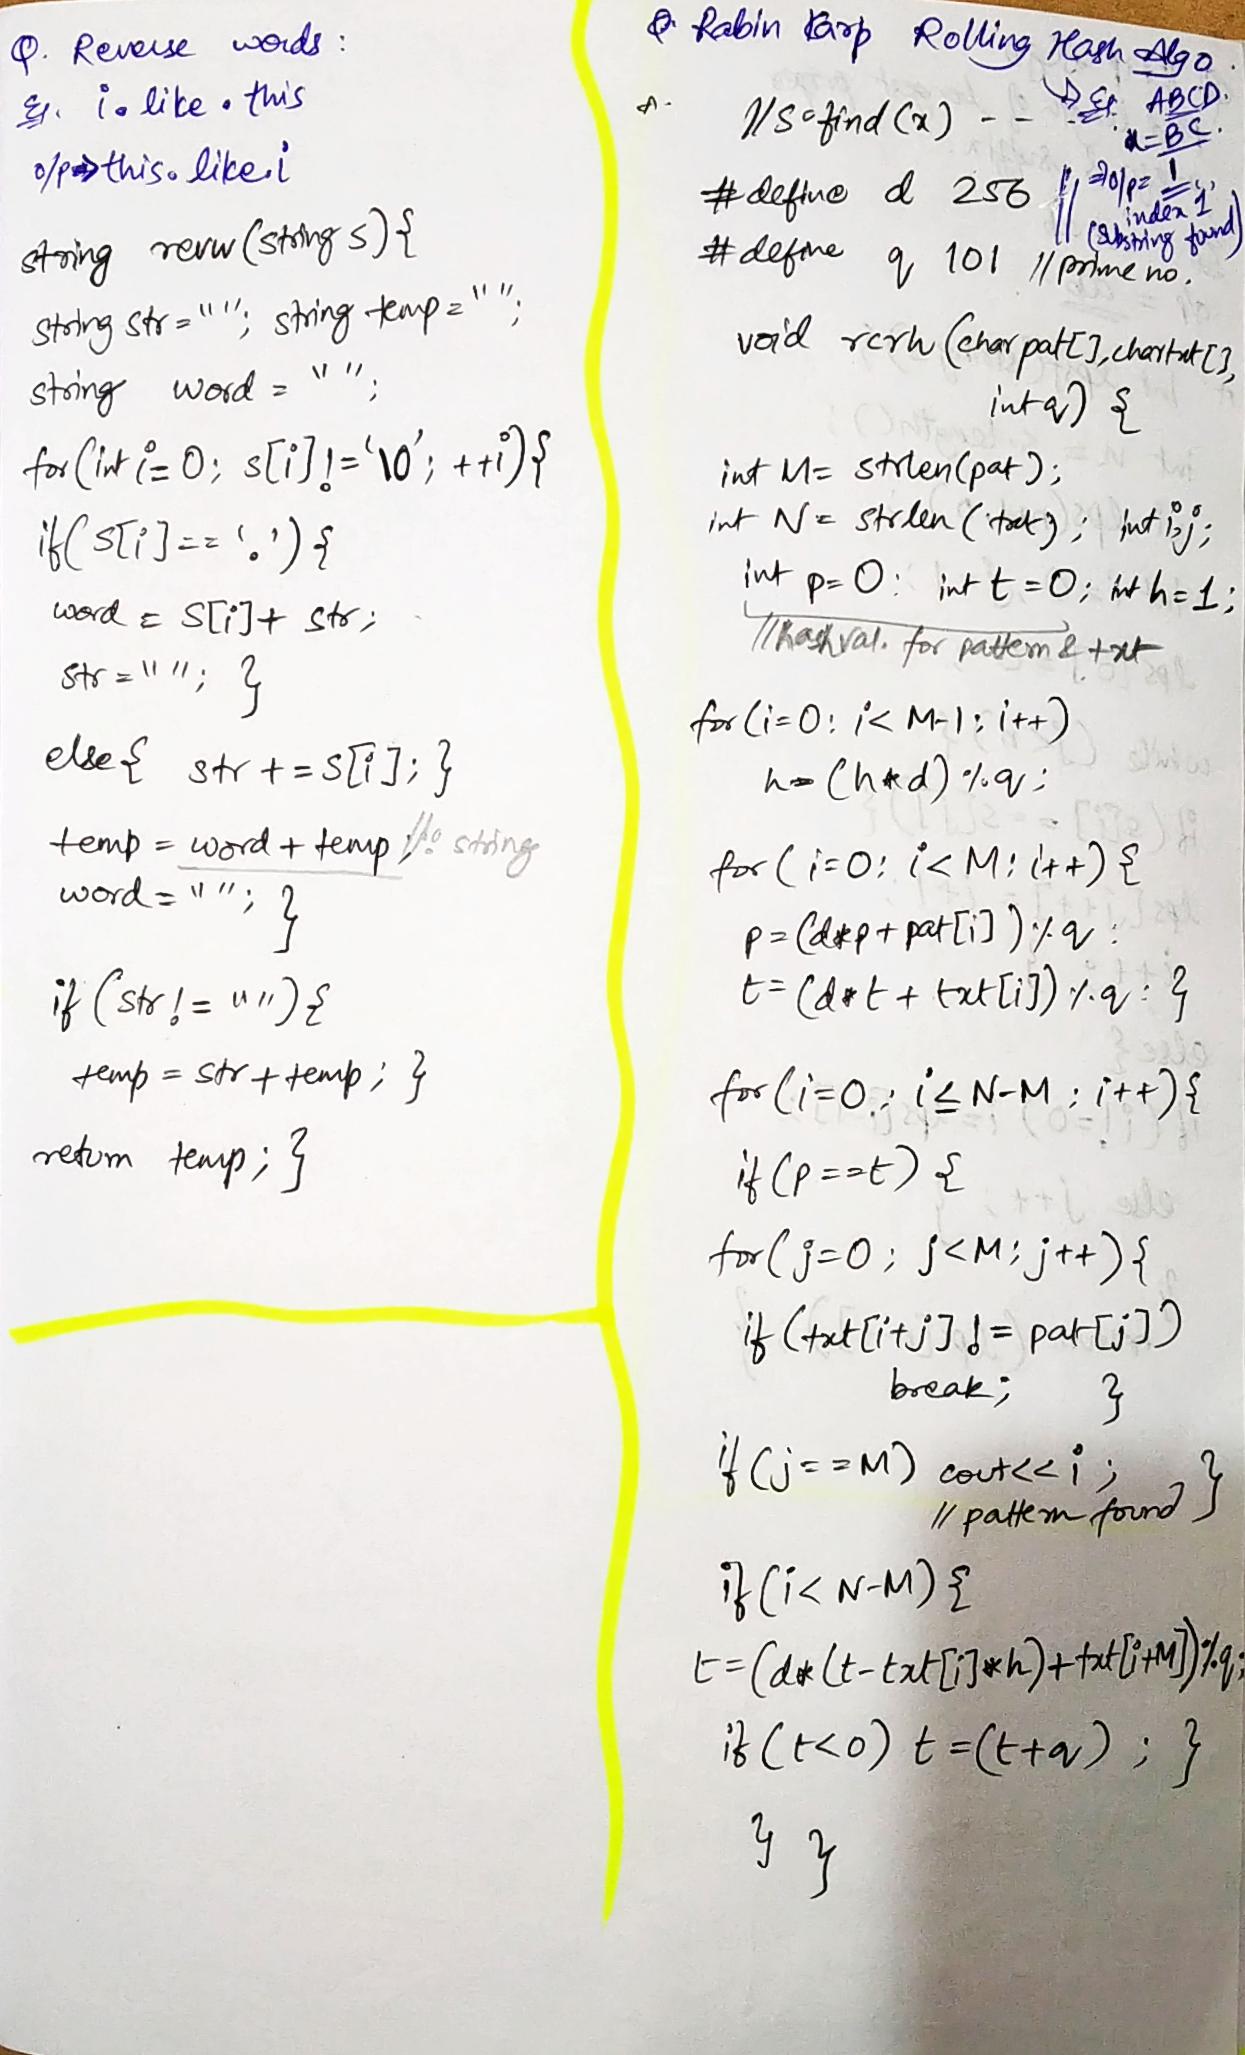 Q. Reverse words :
Eg. i. like . this
o/p => this. like. i
string revw (string s) {
string str = ""; string temp = "";
string word = "";
for (int i = 0; s[i] != '\0'; ++i) {
if( s[i] == '.') {
word = s[i] + str;
str = ""; }
else { str += s[i]; }
temp = word + temp ; //: string
word = ""; }
if (str != "") {
temp = str + temp ; }
return temp ; }
Q. Rabin Karp Rolling Hash Algo.
A. //s.find (x) - - - Eg. ABCD.
x = BC.
# define d 256 // => o/p = 1
index '1'
(substring found)
# define q 101 // prime no.
void rcrh (char pat[], char txt[],
int q) {
int M = strlen(pat);
int N = strlen (txt) ; int i, j;
int p = 0; int t = 0; int h = 1;
// hash val. for pattern & txt
for (i=0; i < M-1; i++)
h = (h*d) % q ;
for ( i=0; i < M; i++) {
p = (d*p + pat[i] ) % q ;
t = (d*t + txt[i]) % q ; }
for (i=0 ; i ≤ N-M ; i++) {
if (p == t) {
for (j=0 ; j < M; j++) {
if (txt[i+j] != pat[j])
break; }
if (j == M) cout << i ; }
// pattern found
if (i < N-M) {
t = (d* (t - txt[i]*h) + txt[i+M]) % q;
if (t<0) t = (t+q) ; }
} }